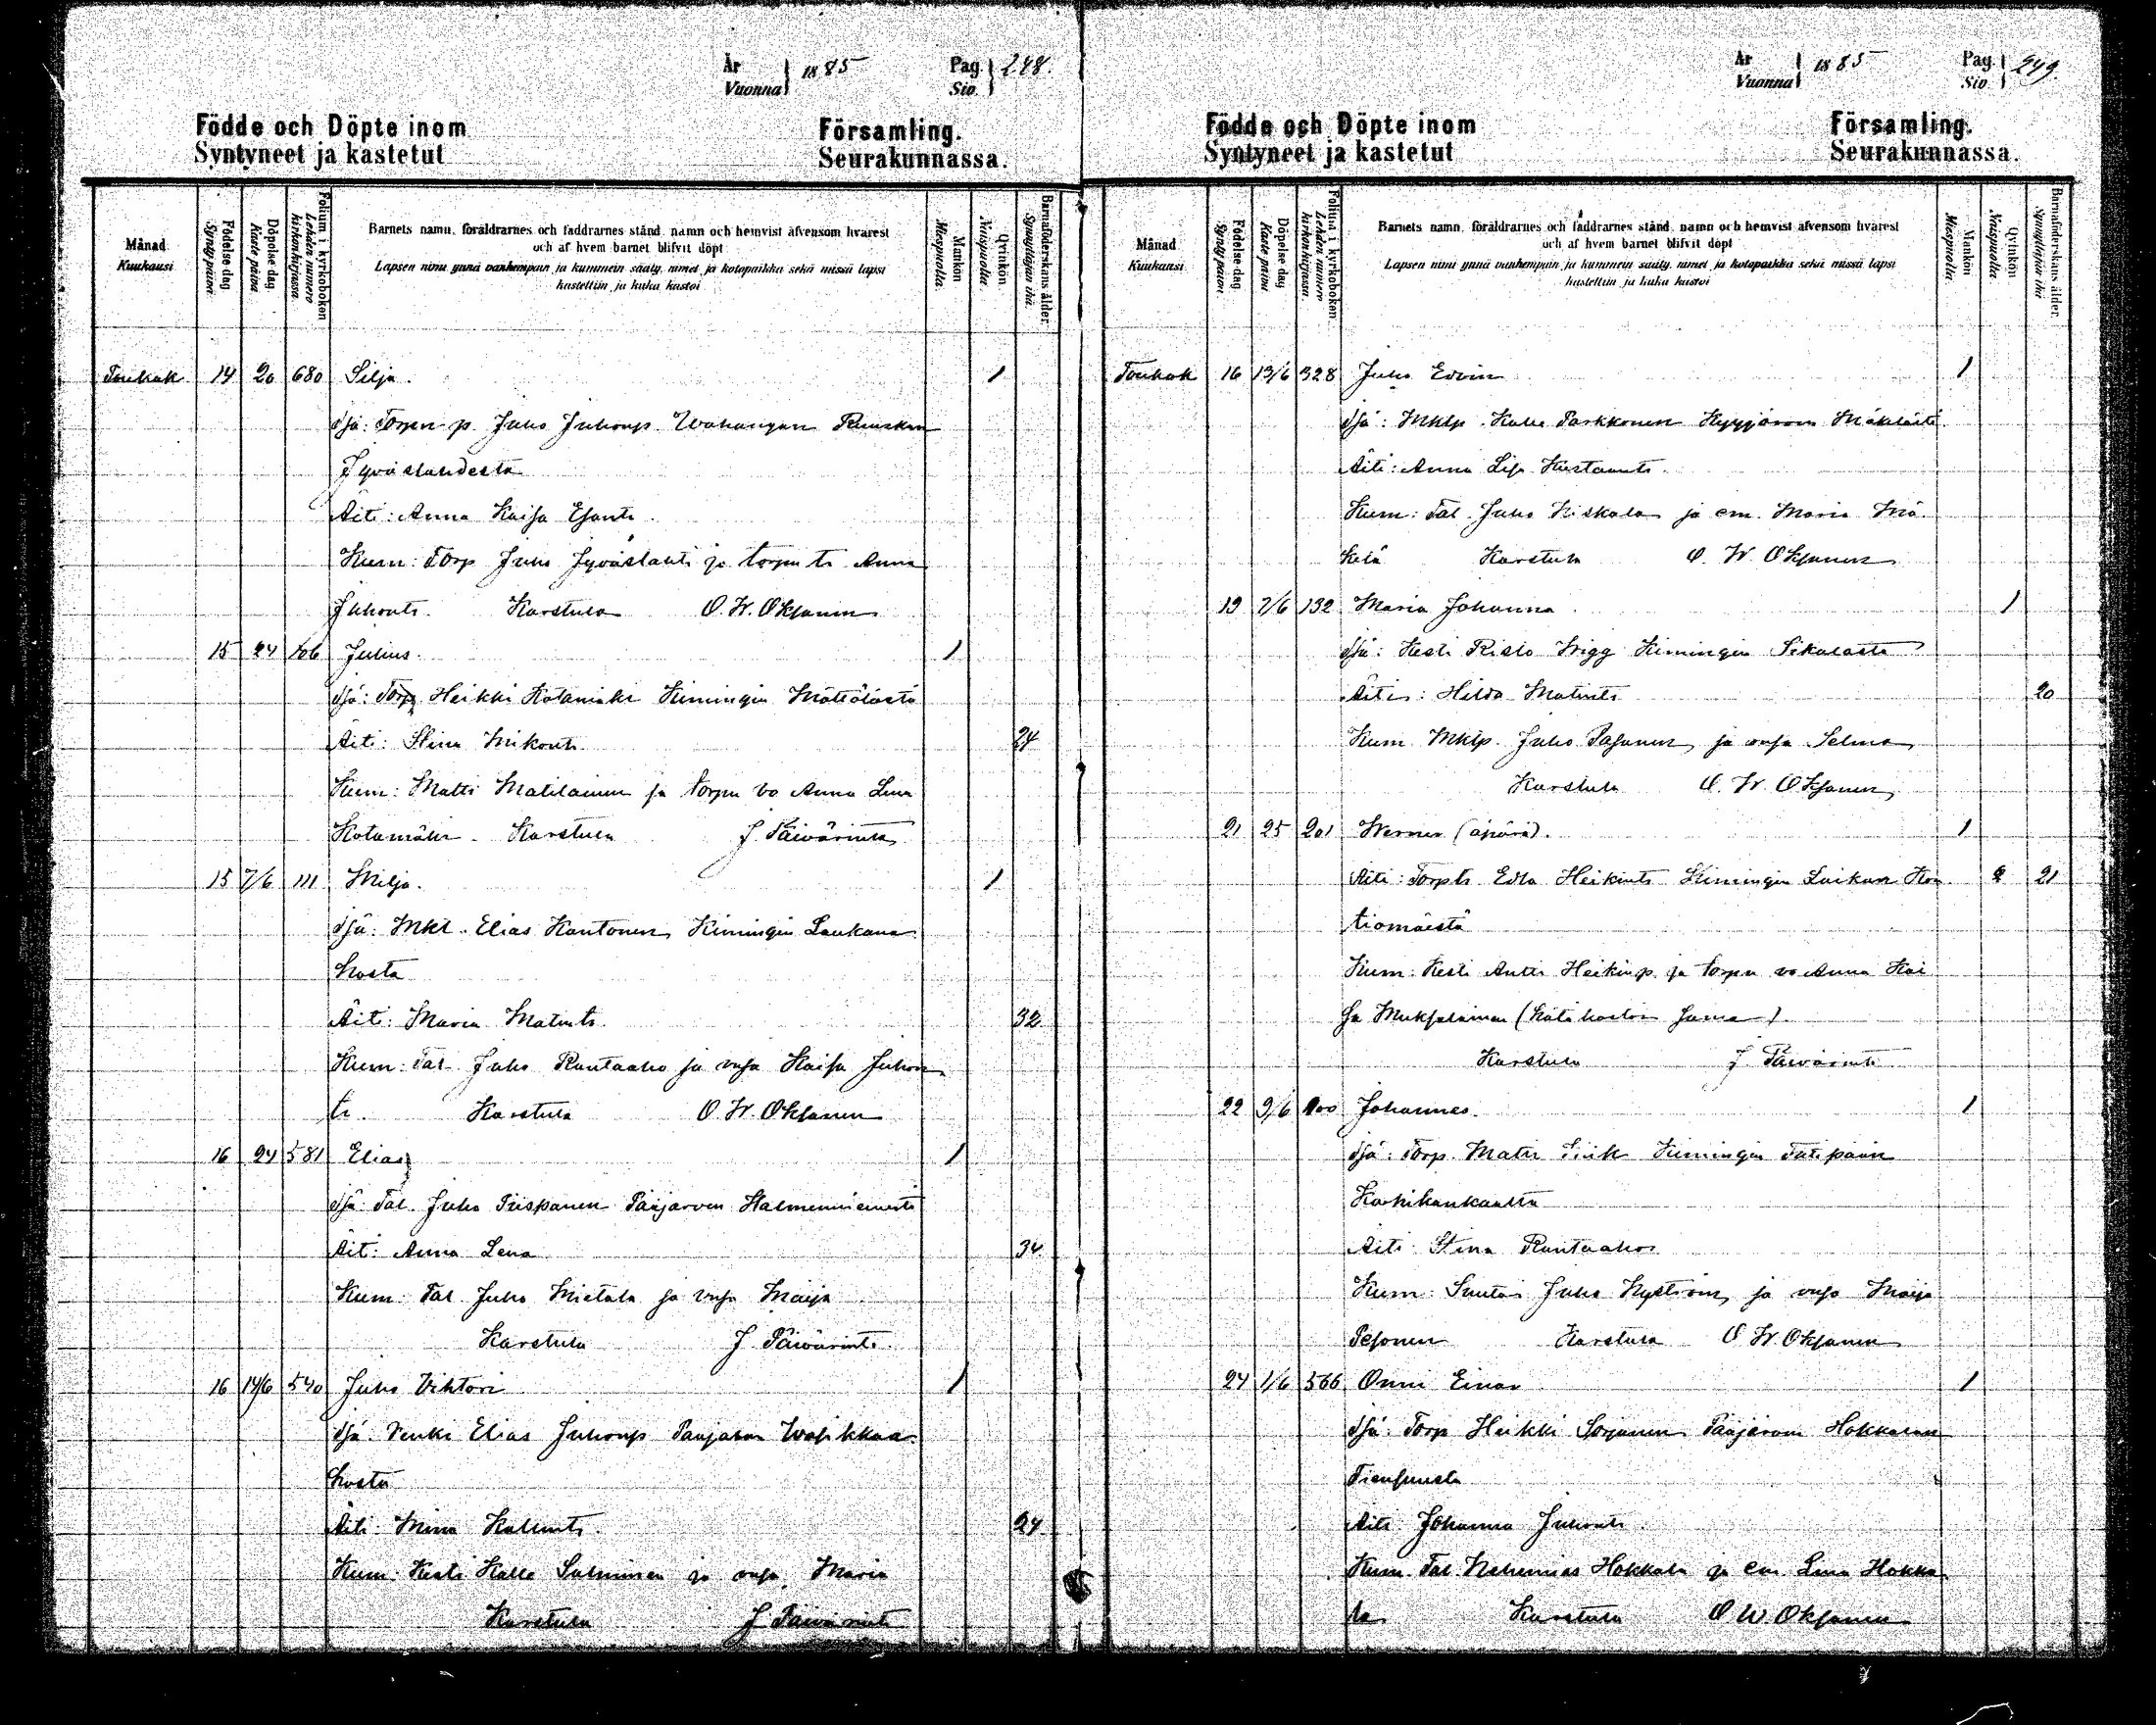 År 1885 Pag. 248.
Vuonna Siv.
Födde och Döpte inom Församling.
Syntyneet ja kastetut Seurakunnassa.
Månad
Kuukausi
Födelse dag
Synty päivä
Döpelse dag
Kaste päivä
Folium i kyrkoboken
Lehden numero kirkonkirjassa
Barnets namn, föräldrarnes och faddrarnes stånd namn och hemvist äfvensom hvarest
och af hvem barnet blifvit döpt
Lapsen nimi ynnä vanhempain ja kummein sääty, nimet ja kotopaikka sekä missä lapsi
kastettiin ja kuka kastoi
Mankön
Miespuolia
Qvinkön
Naispuolia
Barnaföderskans ålder
Synnyttäjän ikä
Toukok 14 20 680 Silja. 1
Isä: Torpan p. Juho Juhonp. Wahangan
Jyväslahdesta
Äiti: Anna Kaisa Esantr.
Kum: Torp Juho Jyväslahti ja torpn tr Anna
Juhontr. Karstula O. W. Oksanen
15 24 106 Julius. 1
Isä: Torp Heikki Kotamäki Kimingin
Äiti: Stina Mikontr. 24
Kum: Matti Matilainen ja torpn vo Anna Lena
Kotamäki. Karstula J. Päivärinta
15 7/6 111 Milja. 1
Isä: Mkl. Elias Kantonen Kimingin Laukana
hosta
Äiti: Maria Matintr. 32
Kum: Tal. Juho Rantaaho ja vaja Kaisa Juhon
tr. Karstula O. W. Oksanen
16 24 581 Elias 1
Isä: Tal. Juho Piispanen Pääjärven Halmeniemestä
Äit: Anna Lena 34
Kum: Tal. Juho Mietala ja vaja Maija
Karstula J Päivärinta.
16 14/6 540 Juho Viktori 1
Isä: Renki Elias Juhonp Pääjärven
hosta
Äiti: Miina Kallentr. 24
Kum: Kesti Kalle Salminen ja vaja Maria
Karstula J Päivärinta
År 1885 Pag. 249.
Vuonna Siv.
Födde och Döpte inom Församling.
Syntyneet ja kastetut Seurakunnassa.
Månad
Kuukausi
Födelse dag
Synty päivä
Döpelse dag
Kaste päivä
Folium i kyrkoboken
Lehden numero kirkonkirjassa
Barnets namn, föräldrarnes och faddrarnes stånd namn och hemvist äfvensom hvarest
och af hvem barnet blifvit döpt
Lapsen nimi ynnä vanhempain ja kummein sääty, nimet ja kotopaikka sekä missä lapsi
kastettiin ja kuka kastoi
Mankön
Miespuolia
Qvinkön
Naispuolia
Barnaföderskans ålder
Synnyttäjän ikä
Toukok 16 13/6 328 Juho Edvin 1
Isä: Mklp. Kalle Parkkonen Kyyjärven Mäkelästä
Äiti: Anna Lisa Kustaantr.
Kum: Tal. Juho Niskala ja em. Maria Mä
kelä Karstula O. W. Oksanen
19 7/6 132 Maria Johanna. 1
Isä: Kesti Risto Wigg Kimingin Sikalasta
Äiti: Hilda Matintr 20
Kum Mklp. Juho Pasanen ja vaja Selma
Karstula O. W. Oksanen
21 25 201 Werner (äpärä). 1
Äiti: Torp tr Edla Heikintr Kimingin Kon 21
tiomäestä
Kum: Kesti Antti Heikinp. ja torpn vo Anna Kai
sa
Karstula J Päivärinta
22 9/6 100 Johannes. 1
Isä: Torp. Matti Kimingin
Äiti: Stina Rantaaho
Kum: Suutari Juho Nyström ja vaja Maija
Pesonen Karstula O W. Oksanen
24 1/6 566 Onni Einar 1
Isä: Torp Heikki Sorjanen Pääjärven Hokkalan
Äiti Johanna Juhontr.
Kum. Tal. Nehemias Hokkala ja em. Lena Hokka
la Karstula O W. Oksanen